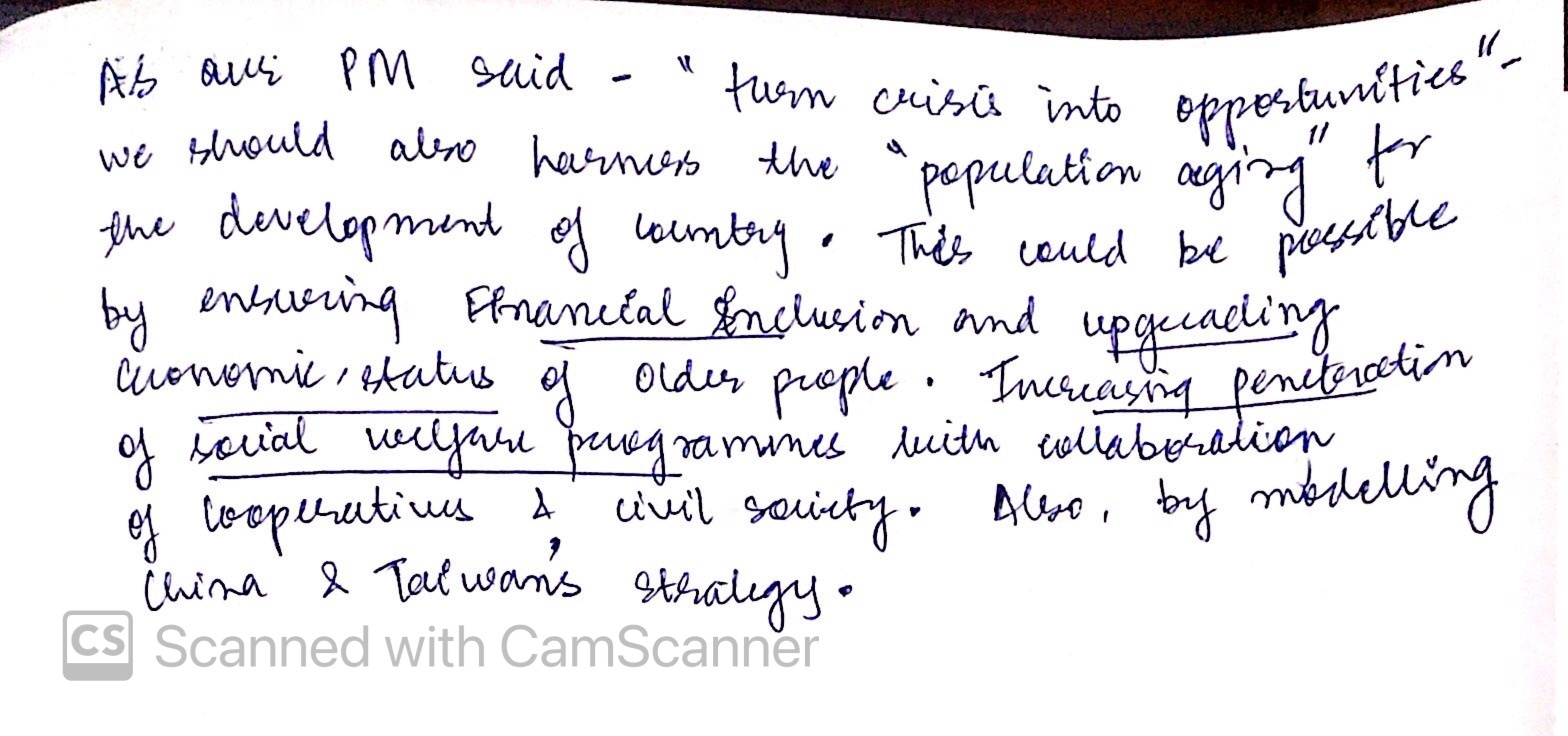 As our PM said - "turn crisis into opportunities"-
we should also harness the "population aging" for
the development of country. This could be possible
by ensuring Financial Inclusion and upgrading
economic, status of older people. Increasing penetration
of social welfare programmes with collaboration
of cooperatives & civil society. Also, by modelling
China & Taiwan's strategy.
CS Scanned with CamScanner